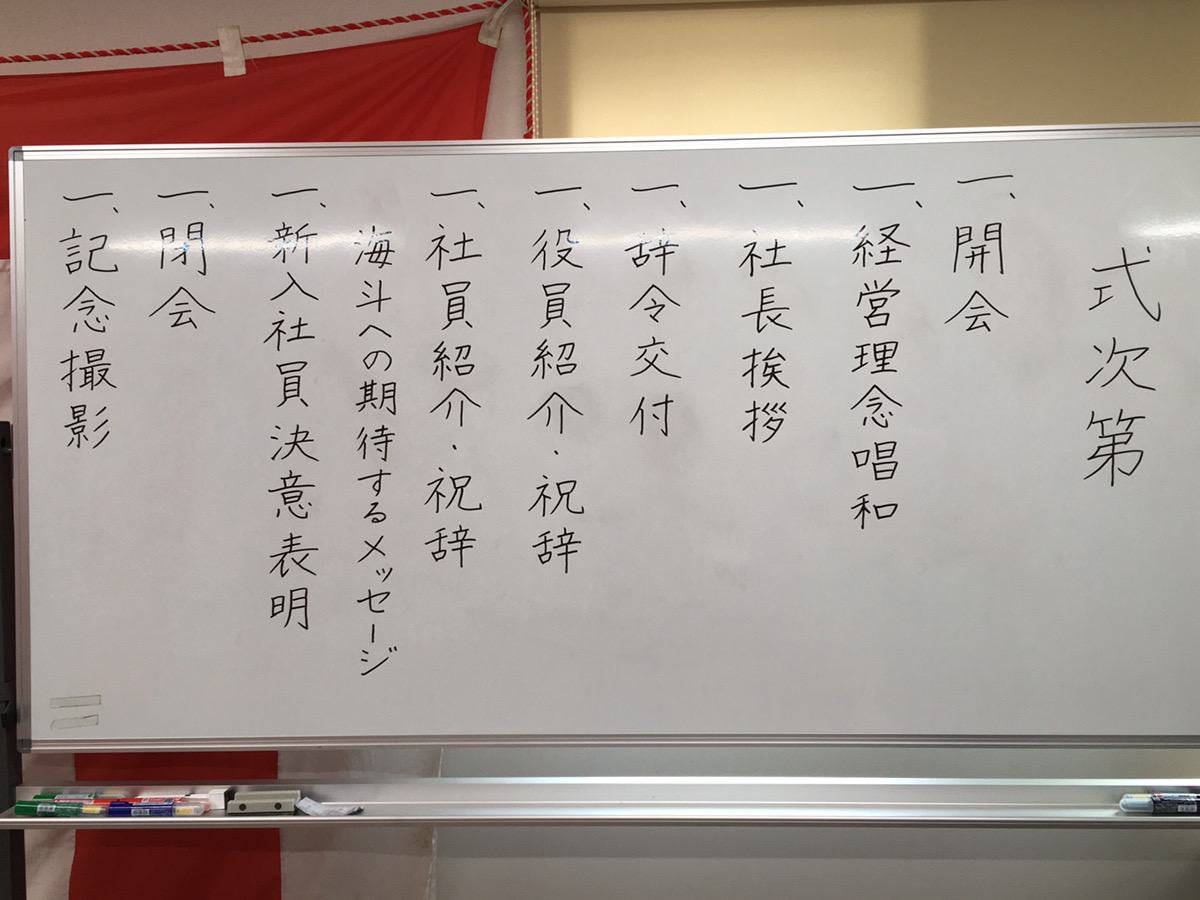 式次第
一、開会
一、経営理念唱和
一、社長挨拶
一、辞令交付
一、役員紹介・祝辞
一、社員紹介・祝辞
海斗への期待するメッセージ
一、新入社員決意表明
一、閉会
一、記念撮影